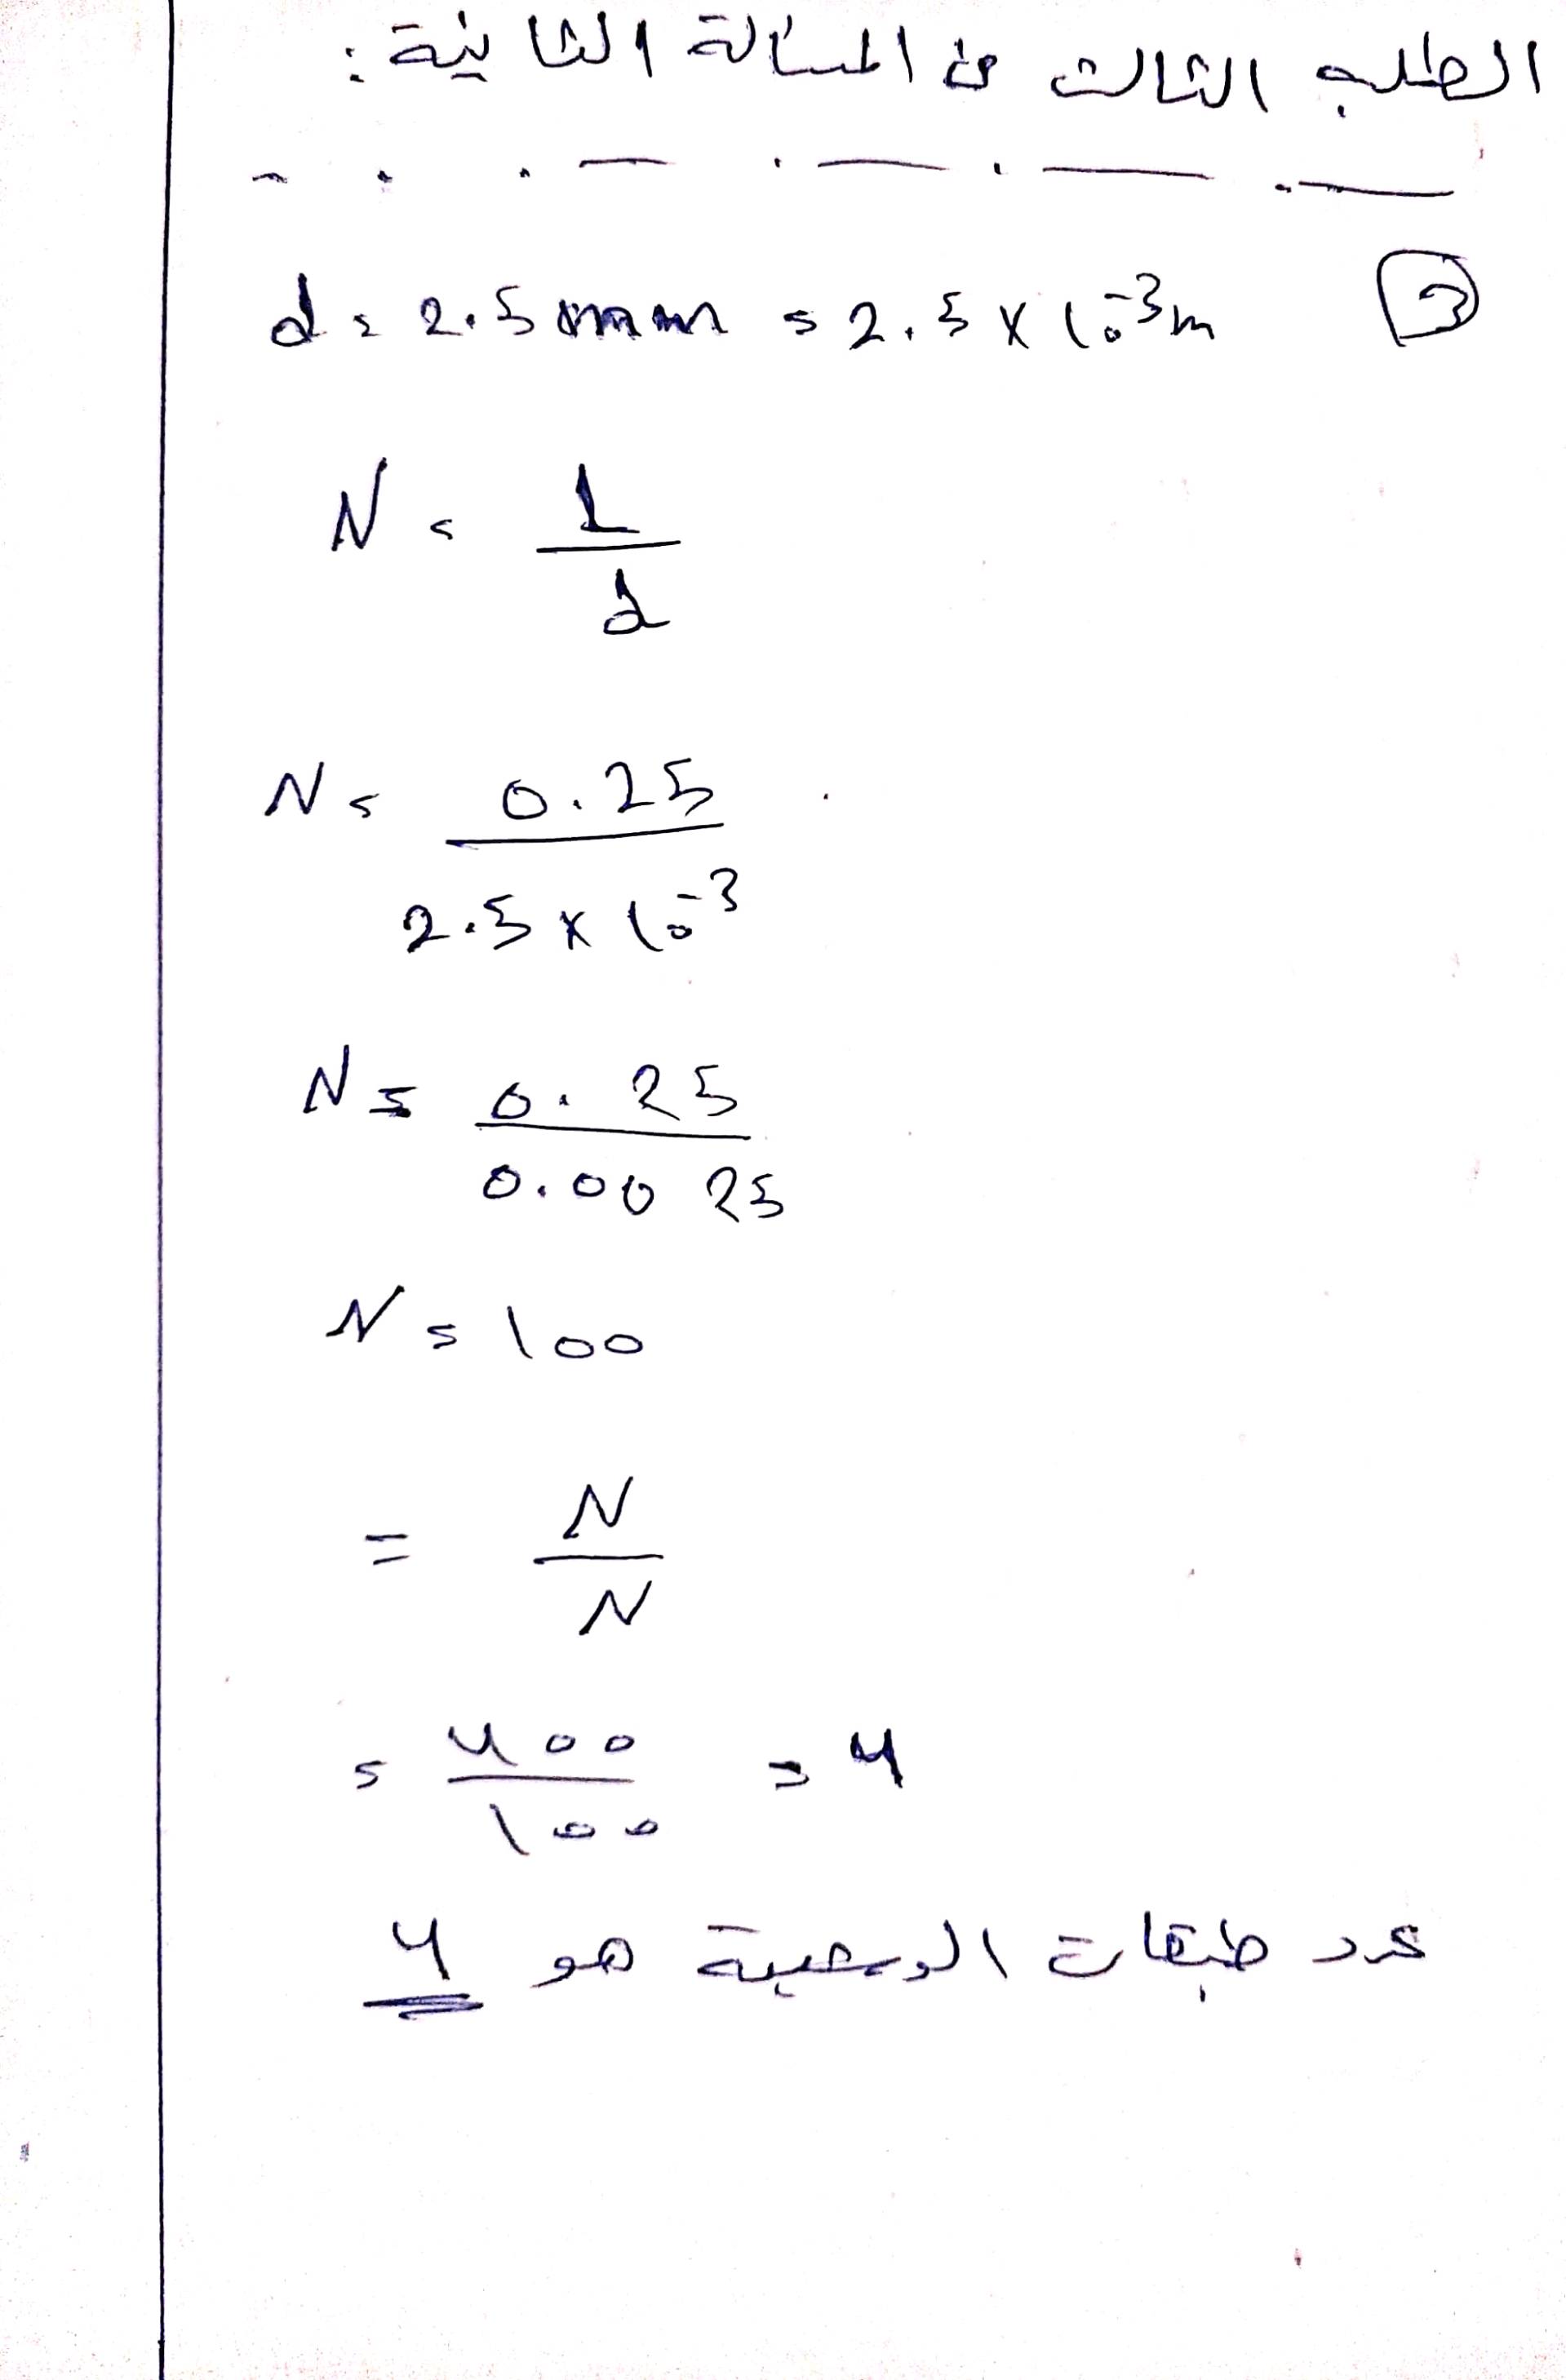 الطلب الثالث من المسألة الثانية:
③ d = 2.5 mm = 2.5 × 10⁻³ m
N = L / d
N = 0.25 / 2.5 × 10⁻³
N = 0.25 / 0.0025
N = 100
= N / N
= 400 / 100 = 4
عدد طبقات الوشيعة هو 4